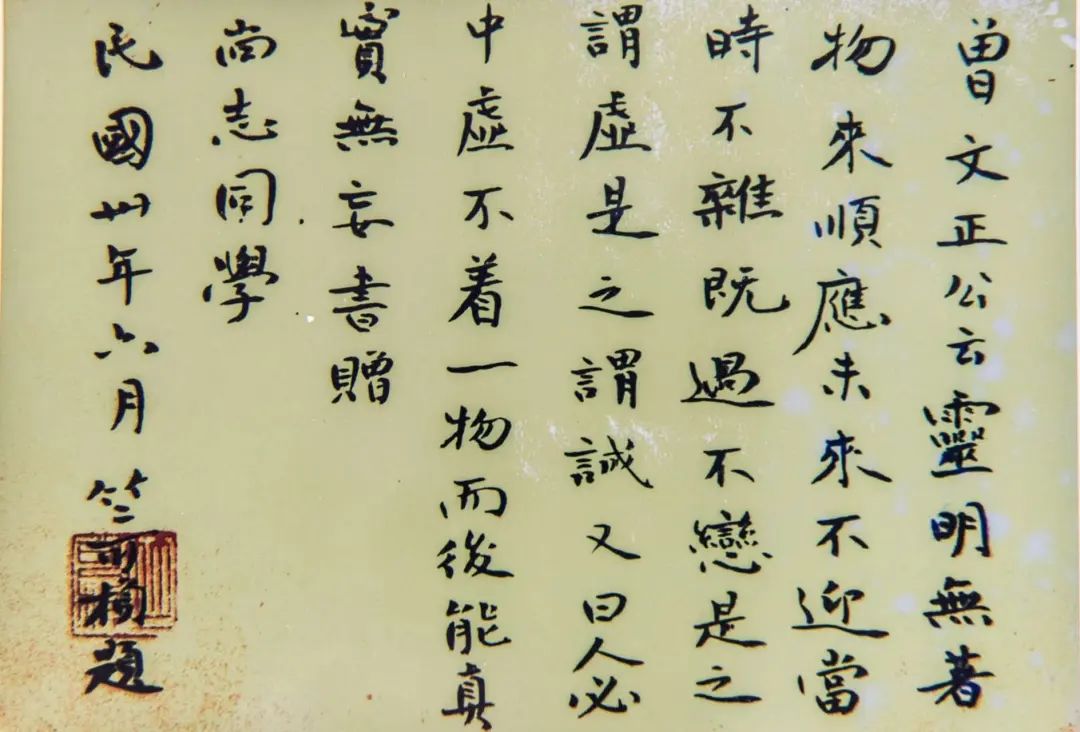 曾文正公云靈明無著
物來順應未來不迎當
時不雜既過不戀是之
謂虛是之謂誠又曰人必
中虛不着一物而後能真
實無妄書贈
尚志同學
民國卅年六月竺可楨題